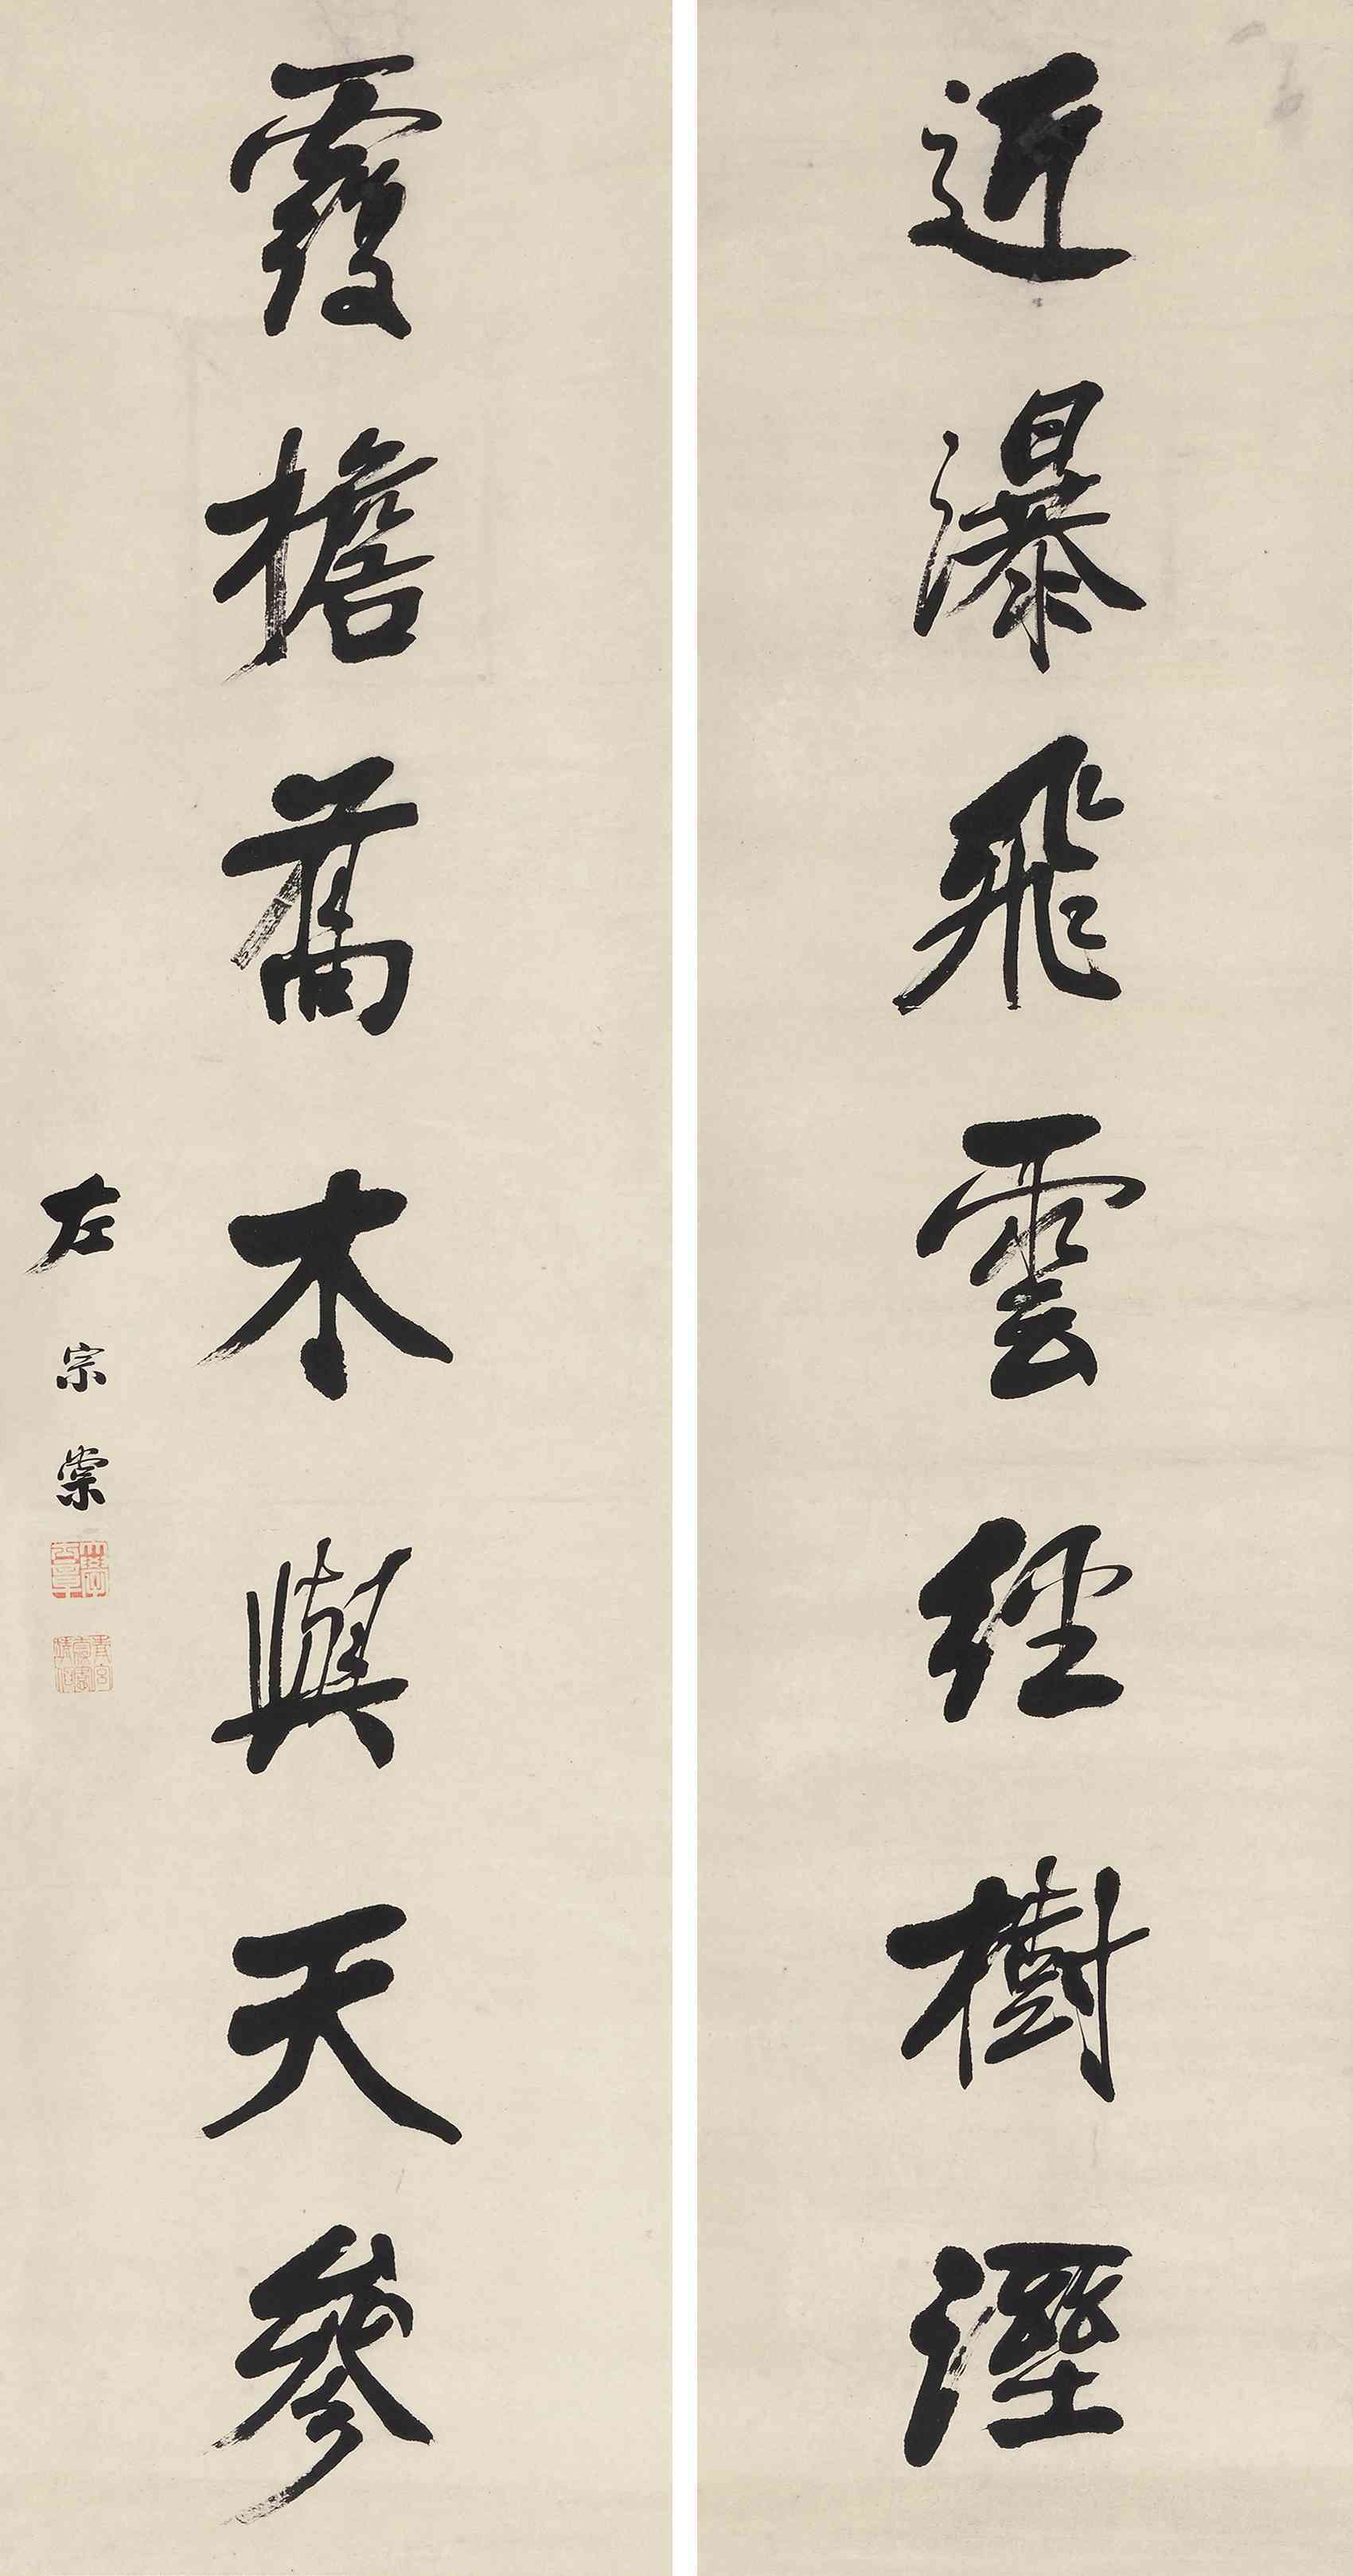 近瀑飛雲經樹溼
覆檐喬木與天參
左宗棠